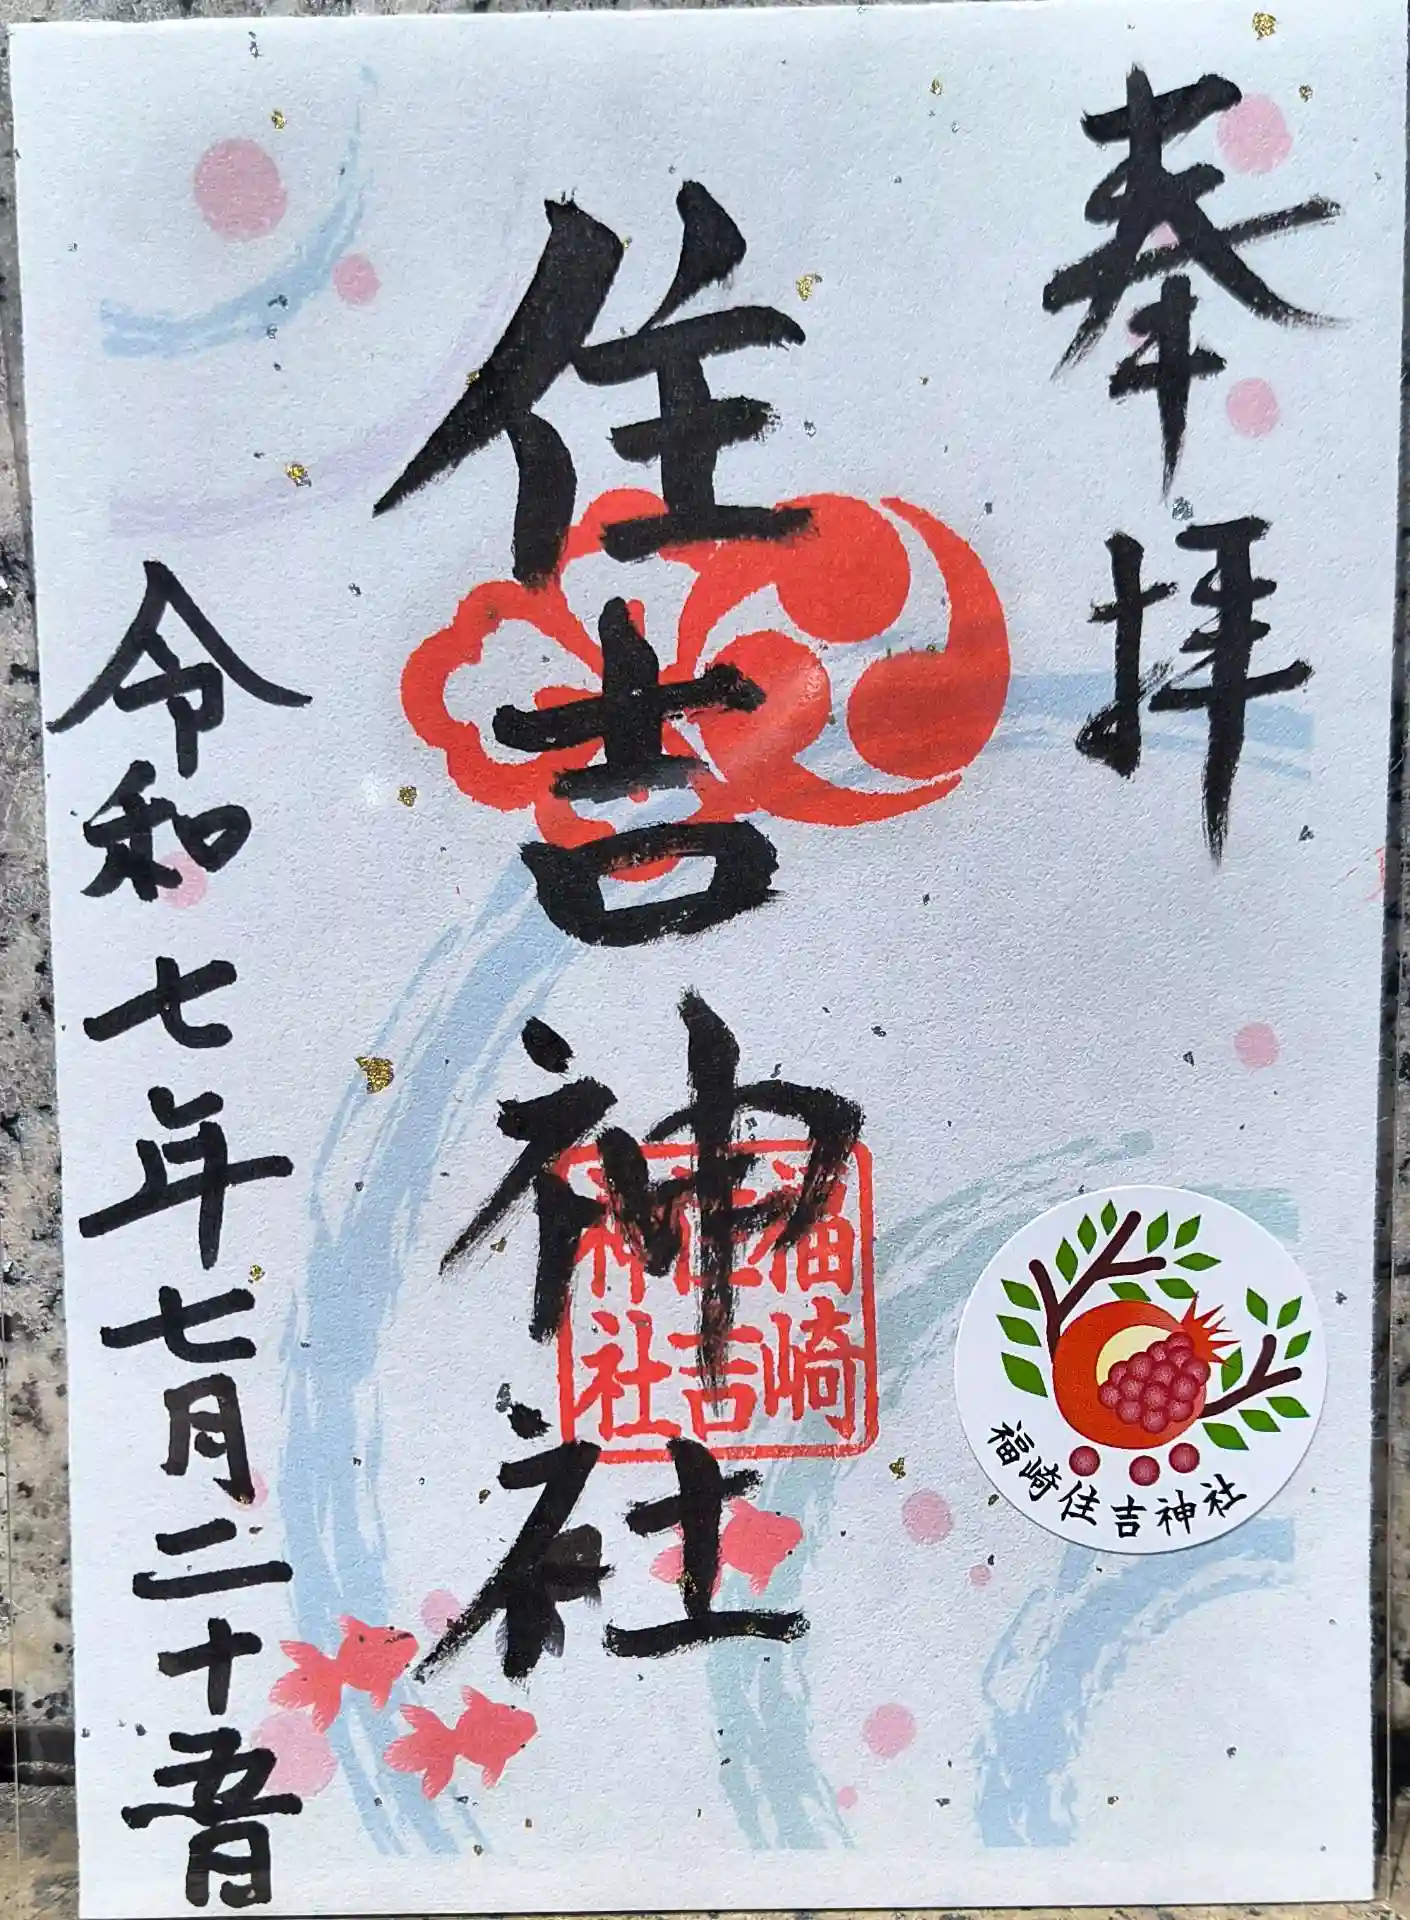 奉拝
住吉神社
令和七年七月二十五日
福崎
住吉
神社
福崎住吉神社